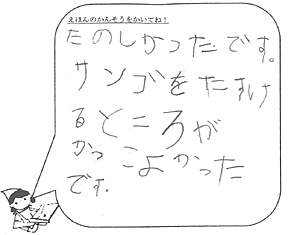 えほんのかんそうをかいてね！
たのしかったです。
サンゴをたすけ
るところが
かっこよかった
です.